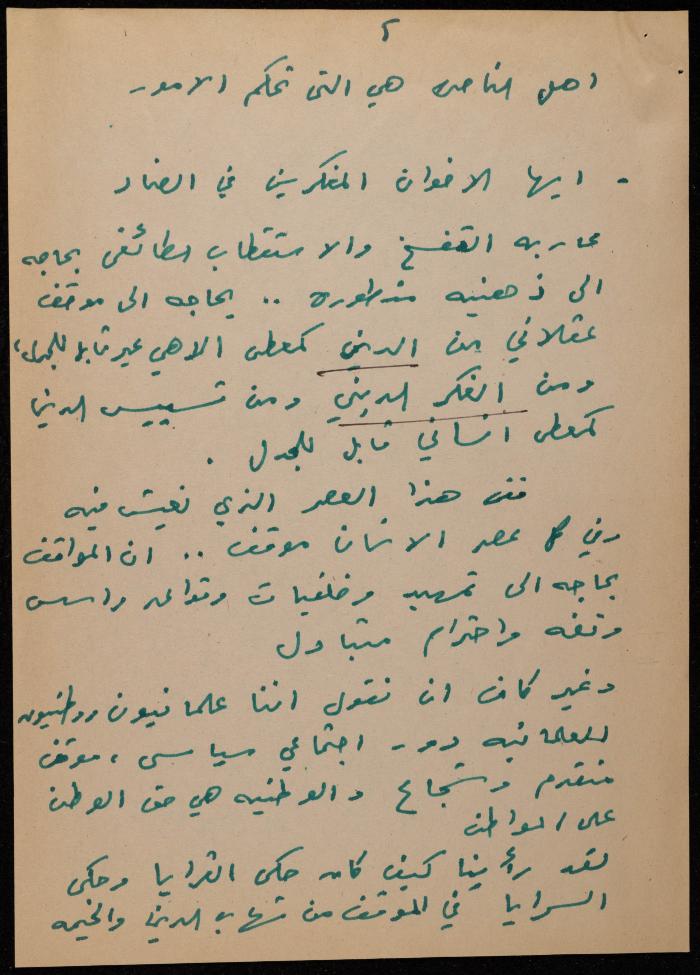 ٢
اهل الناصره هي التي تحكم الامور
- ايها الاخوان المفكرين في الضاد
محاربه التفسخ والاستقطاب الطائفي بحاجه
الى ذهنيه متطوره .. بحاجه الى موقف
عقلاني من الدين كمعطى الاهي غير قابل للجدل،
ومن الفكر الديني ومن تسييس الدين
كمعطى انساني قابل للجدل .
ففي هذا العصر الذي نعيش فيه
وفي كل عصر الانسان موقف .. ان المواقف
بحاجه الى تمهيد وخلفيات وقواعد واسس
وثقه واحترام متبادل
وغير كاف ان نقول اننا علمانيون ووطنيون
للعلمانيه دور اجتماعي سياسي، موقف
متقدم وشجاع والوطنيه هي حق الوطن
على المواطن
لقد رأينا كيف كان حكي القرايا وحكي
السرايا في الموقف من شهاب الدين والخيمه